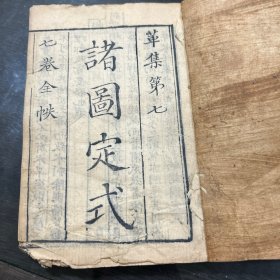 革集第七
諸圖定式
七卷全帙